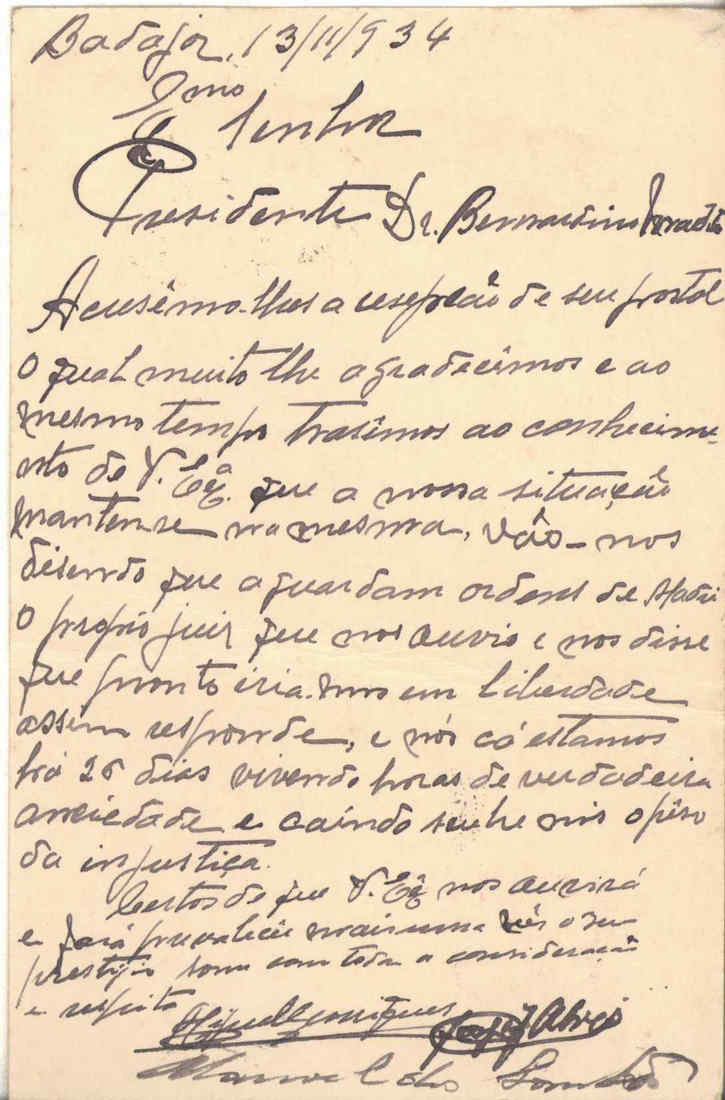 Badajoz, 13/11/934
Exmo Senhor
Presidente Dr. Bernardino Machado
Acusâmo-lhes a resepção de seu postal
O qual muito lhe agradecêmos e ao
mesmo tempo trasêmos ao conhecime-
nto de V. Exª. que a nossa situação
manten-se na mesma, vão-nos
disendo que aguardam ordens de Madri
O proprio juiz que nos ouvio e nos disse
que pronto iria-mos em liberdade
assim responde, e nós cá estamos
há 26 dias vivendo horas de verdadeira
anciedade e caíndo sobre nós o pêso
da injustiça.
Certos de que V. Exª nos ouvirá
e fará prevalecêr mais uma vês o seu
prestijio somos com toda a consideração
e respeito
Miguel Rodrigues
Manuel dos